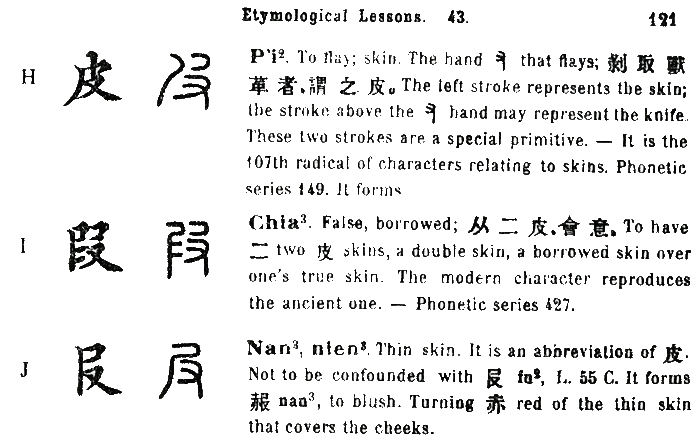 Etymological Lessons. 43. 121
H 皮
P'i². To flay; skin. The hand that flays; 剝 取 獸
革 者、謂 之 皮。The left stroke represents the skin;
the stroke above the hand may represent the knife.
These two strokes are a special primitive. — It is the
107th radical of characters relating to skins. Phonetic
series 149. It forms
I 叚
Chia³. False, borrowed; 从 二 皮、會 意。To have
二 two 皮 skins, a double skin, a borrowed skin over
one's true skin. The modern character reproduces
the ancient one. — Phonetic series 427.
J 㞋
Nan³, nien³. Thin skin. It is an abbreviation of 皮.
Not to be confounded with 𠬝 fu², L. 55 C. It forms
赧 nan³, to blush. Turning 赤 red of the thin skin
that covers the cheeks.